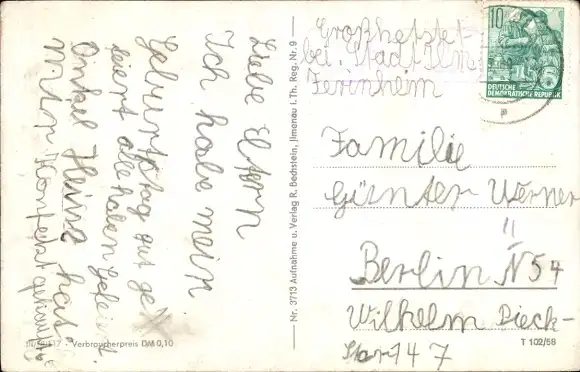 Liebe Eltern
Ich habe mein
Geburtstag gut ge
feiert alle haben gefeiert
Onkel Heinz hat
mir ein Konfekt geschenkt
Verbraucherpreis DM 0,10
Nr. 3713 Aufnahme u. Verlag R. Bechstein, Ilmenau i. Th. Reg. Nr. 9
Großhettstet
bei. Stadt Ilm
Ferinheim
10
15
DEUTSCHE
DEMOKRATISCHE REPUBLIK
Familie
Günter Werner
Berlin N54
Wilhelm Pieck-
Str 147
T 102/58